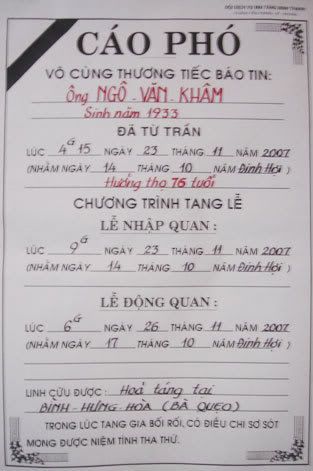 CÁO PHÓ
VÔ CÙNG THƯƠNG TIẾC BÁO TIN:
Ông NGÔ - VĂN - KHÂM
Sinh năm 1933
ĐÃ TỪ TRẦN
LÚC 4G15 NGÀY 23 THÁNG 11 NĂM 2007
(NHẰM NGÀY 14 THÁNG 10 NĂM Đinh Hợi)
Hưởng thọ 76 tuổi
CHƯƠNG TRÌNH TANG LỄ
LỄ NHẬP QUAN :
LÚC 9G NGÀY 23 THÁNG 11 NĂM 2007
(NHẰM NGÀY 14 THÁNG 10 NĂM Đinh Hợi)
LỄ ĐỘNG QUAN :
LÚC 6G NGÀY 26 THÁNG 11 NĂM 2007
(NHẰM NGÀY 17 THÁNG 10 NĂM Đinh Hợi)
LINH CỮU ĐƯỢC : Hoả táng tại
BÌNH - HƯNG - HÒA (BÀ QUẸO)
TRONG LÚC TANG GIA BỐI RỐI, CÓ ĐIỀU CHI SƠ SÓT
MONG ĐƯỢC NIỆM TÌNH THA THỨ.